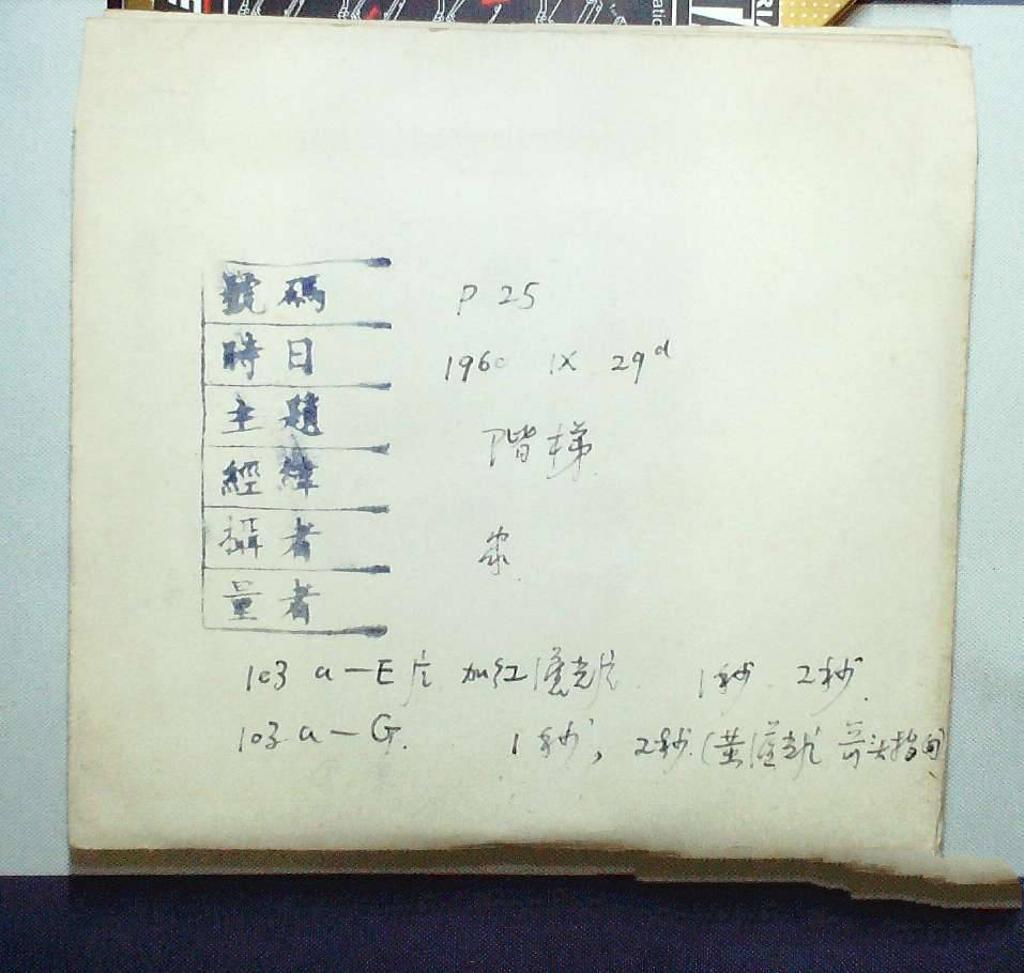 號碼 P 25
時日 1960 IX 29d
主題 階梯
經緯
攝者
量者
103 a—E片 加红濾光片 1秒 2秒
103 a—G. 1秒, 2秒.(黄濾光片 箭头指向